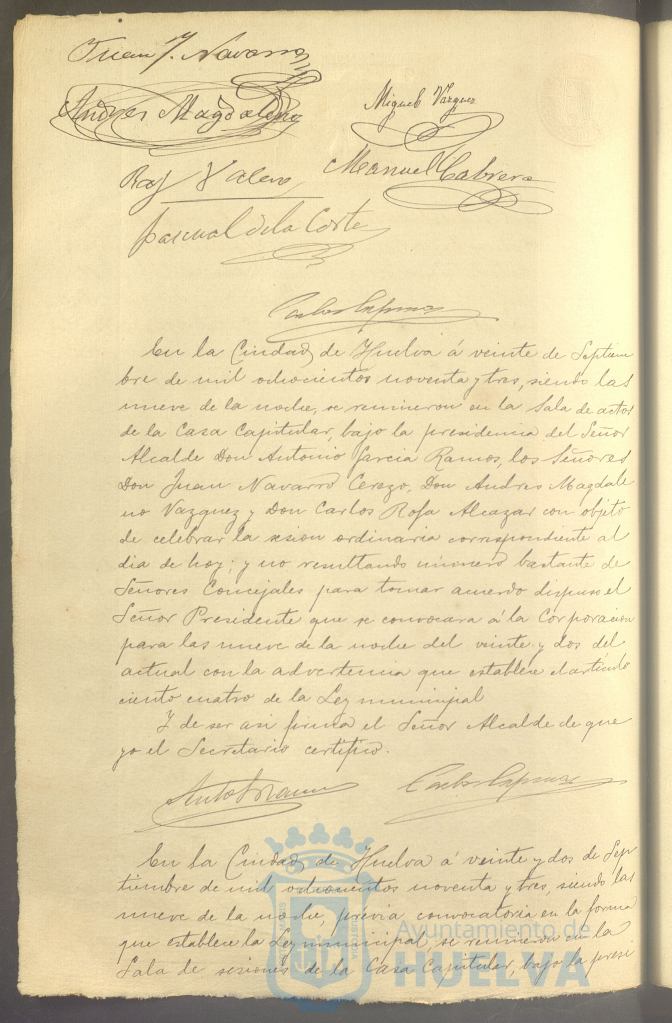 Juan J. Navarro
Andres Magdaleno
Miguel Vazquez
Raf Valero
Manuel Cabrera
Pascual de la Corte
Carlos
En la Ciudad de Huelva á veinte de Septiem
bre de mil ochocientos noventa y tres, siendo las
nueve de la noche, se reunieron en la Sala de actos
de la Casa Capitular, bajo la presidencia del Señor
Alcalde Don Antonio Garcia Ramos, los Señores
Don Juan Navarro Cerezo, Don Andres Magdale
no Vazquez y Don Carlos Rofa Alcazar con objeto
de celebrar la sesion ordinaria correspondiente al
dia de hoy; y no resultando número bastante de
Señores Concejales para tomar acuerdo dispuso el
Señor Presidente que se convocara á la Corporacion
para las nueve de la noche del veinte y dos del
actual con la advertencia que establece el artículo
ciento cuatro de la Ley municipal
Y de ser asi firma el Señor Alcalde de que
yo el Secretario certifico.
Carlos
En la Ciudad de Huelva á veinte y dos de Sep
tiembre de mil ochocientos noventa y tres, siendo las
nueve de la noche, prévia convocatoria en la forma
que establece la Ley municipal, se reunieron en la
Sala de sesiones de la Casa Capitular, bajo la presi
Ayuntamiento de
HUELVA